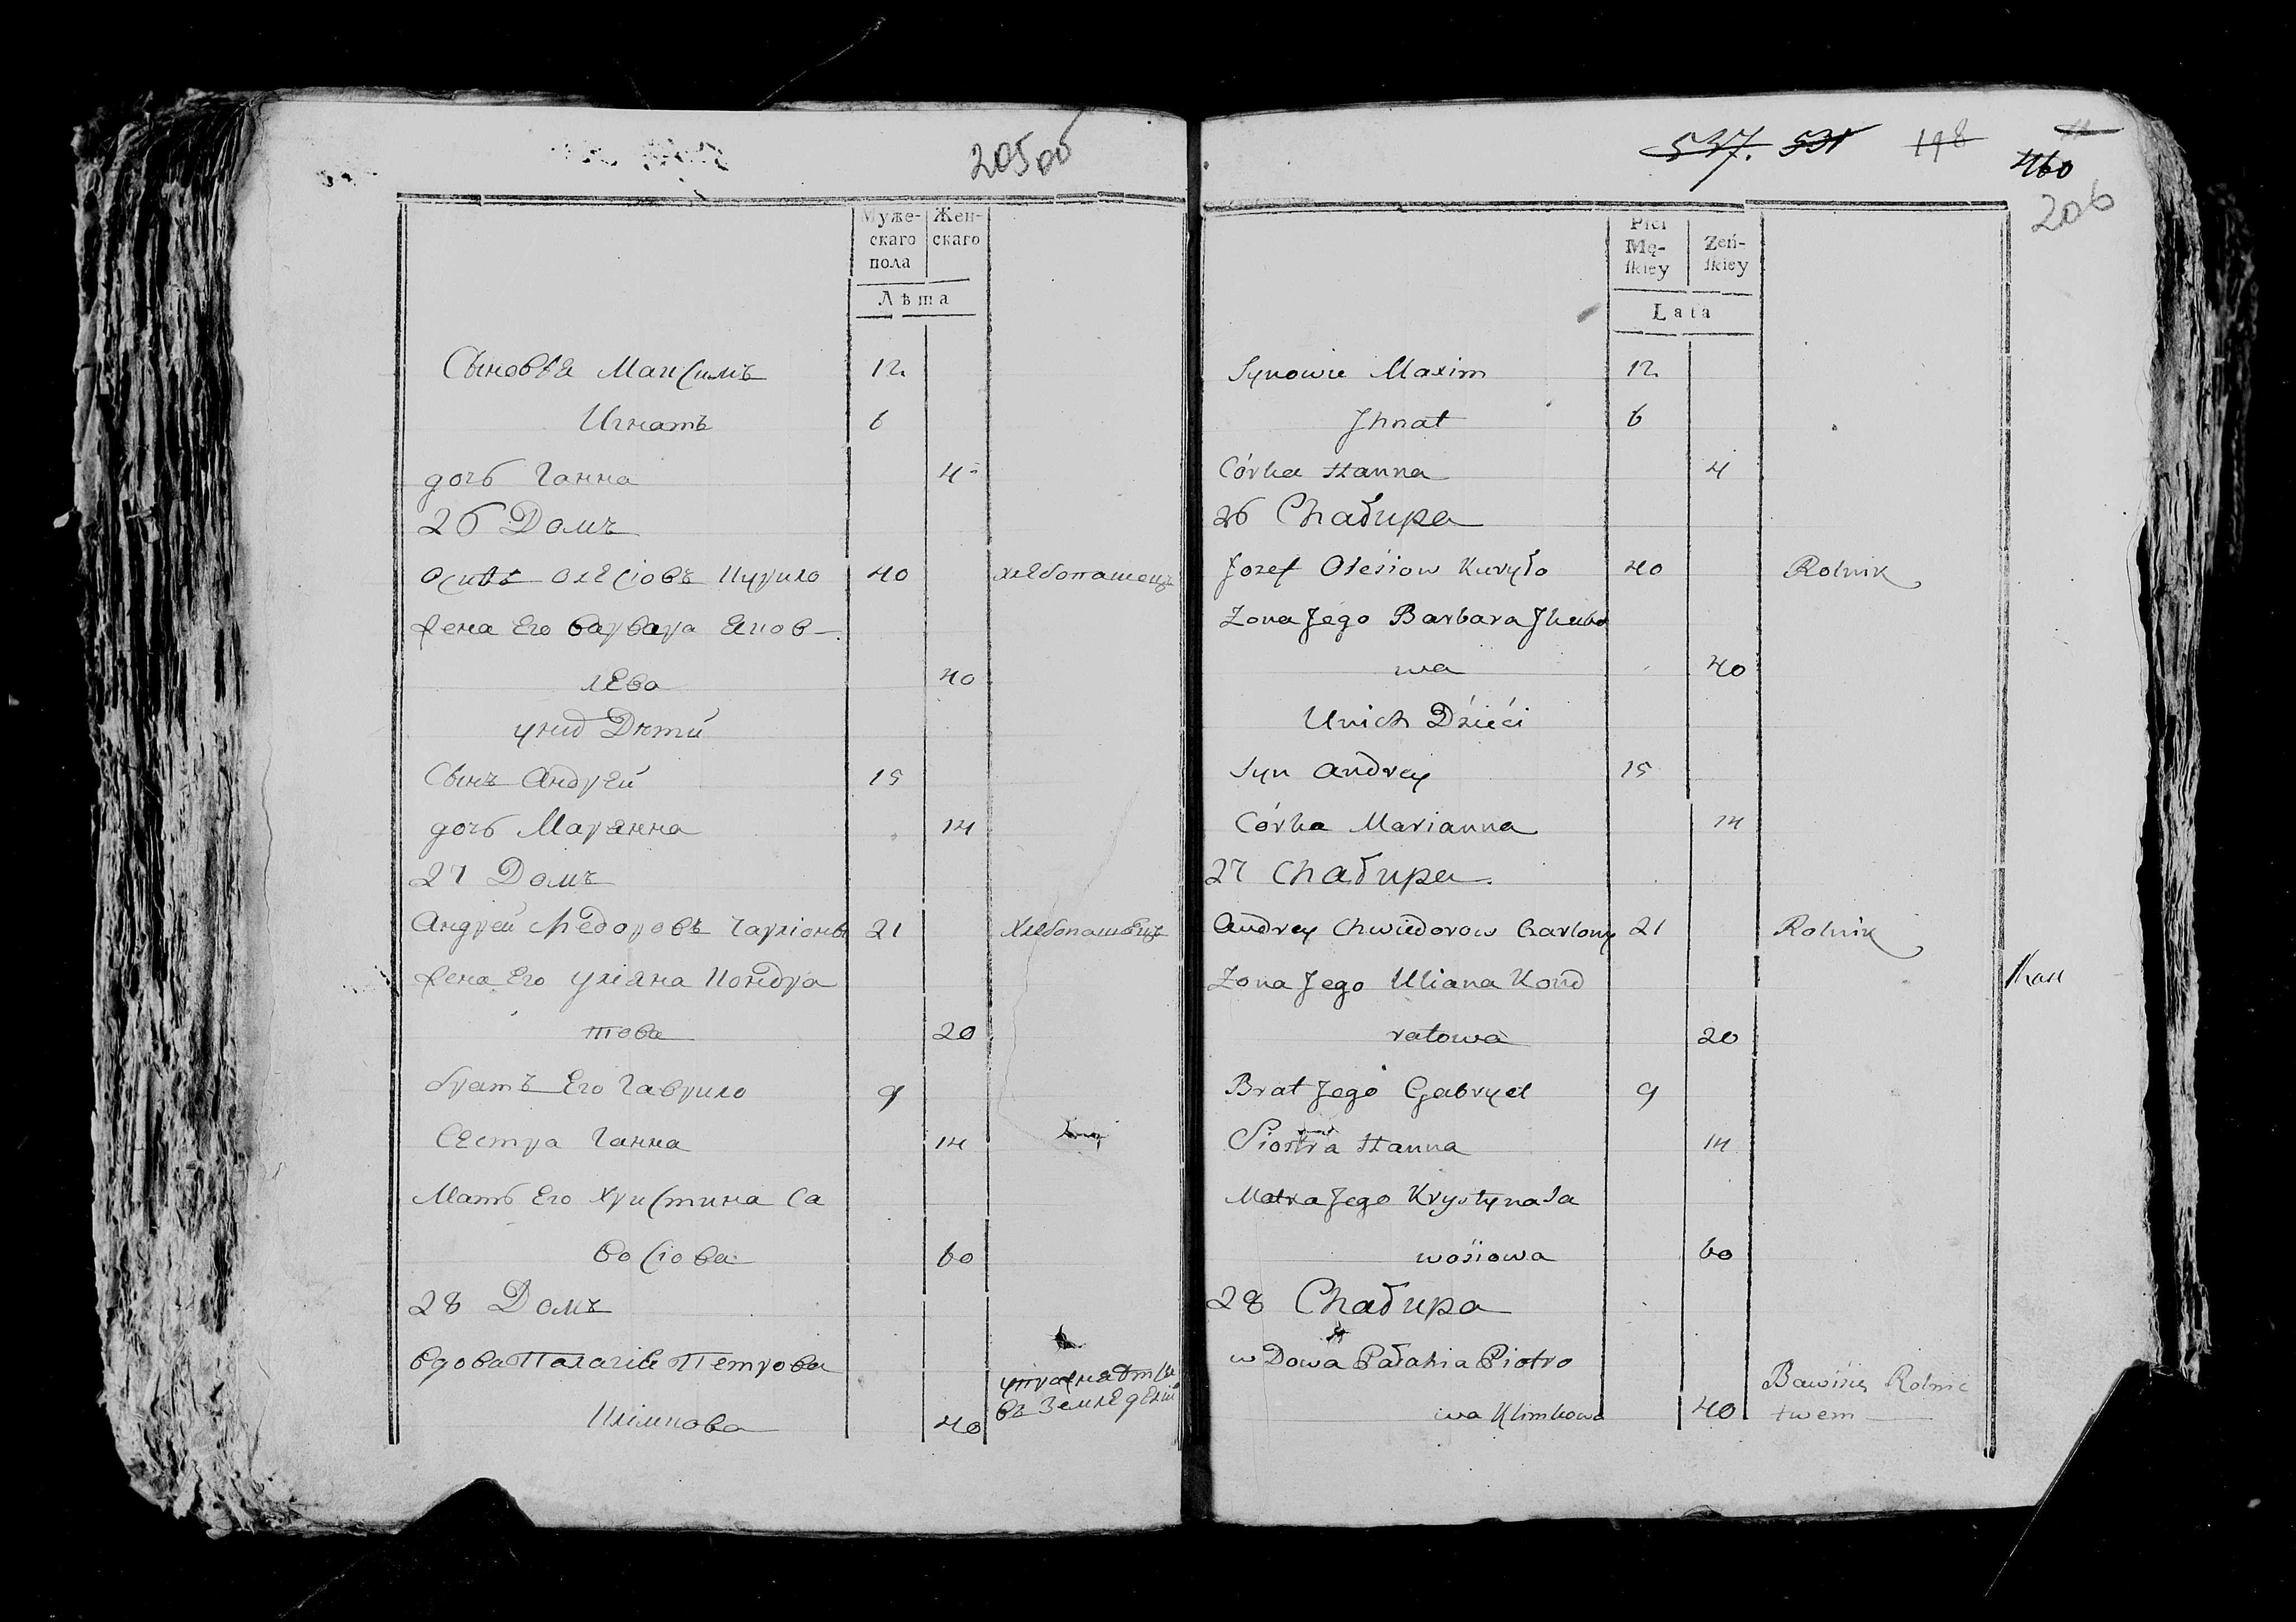 205об
Муже-
скаго
пола
Жен-
скаго
Лѣта
Сыновья Максимъ 12
Игнатъ 6
дочь Ганна 4
26 Домъ
Осипъ Олесіовъ Курило 40 хлебопашецъ
жена Его Варвара Яков-
лева 40
уних Дѣти
Сынъ Андрей 15
дочь Марянна 14
27 Домъ
Андрей Федоровъ 21 хлебопашецъ
жена Его Уляна Кондра
това 20
братъ Его Гаврило 9
Сестра Ганна 14
Мать Его Христина Са
восіова 60
28 Домъ
вдова Палагія Петрова
Клімкова 40
въ Земледелии
537. 531 198
460
206
Płci
Mę-
ſkiey
Zeń-
ſkiey
Lata
Synowie Maxim 12
Jhnat 6
Córka Hanna 4
26 Chałupa
Jozef Olesiow Kuryło 40 Rolnik
Zona Jego Barbara
wa 40
Unich Dzieći
Syn Andrey 15
Córka Marianna 14
27 Chałupa
Andrey Chwiedorow 21 Rolnik
Zona Jego Uliana Kond
ratowa 20
Brat Jego Gabryel 9
Siostra Hanna 14
Matka Jego Krystyna Sa
wosiowa 60
28 Chałupa
wDowa Pałahia Piotro
wa Klimkowa 40
Bawiący Rolnic
twem